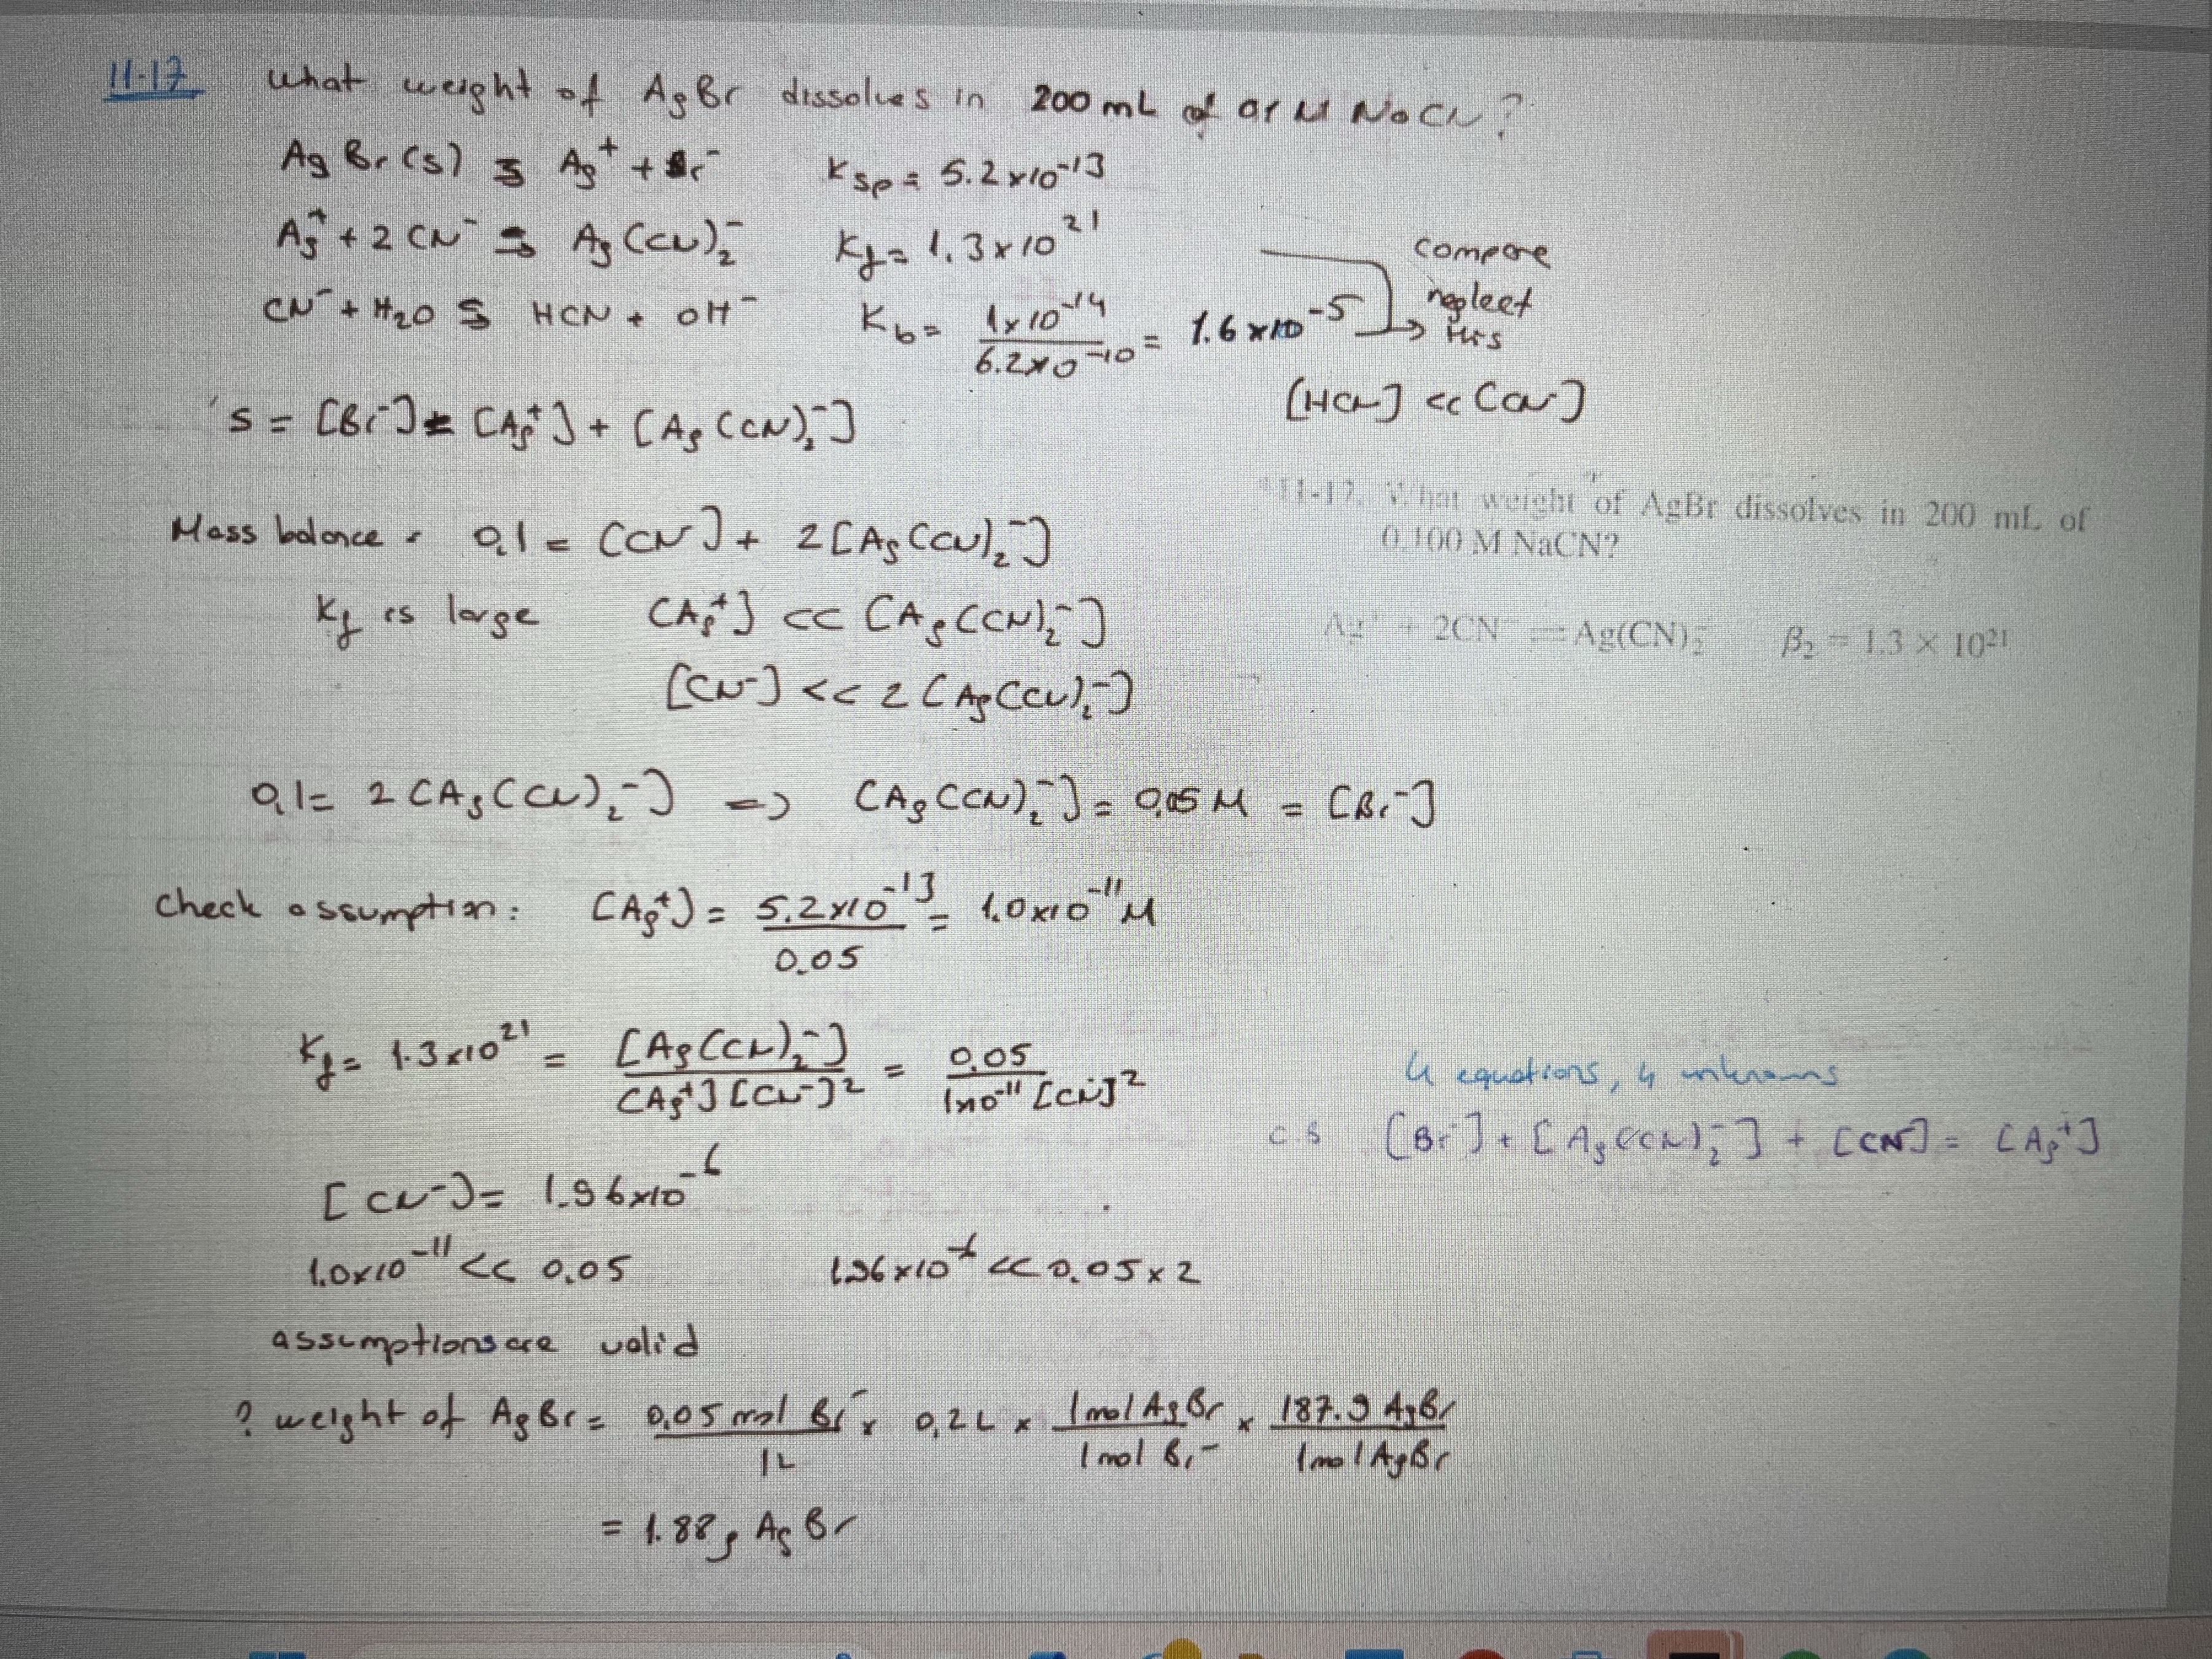 11-17 What weight of AgBr dissolves in 200 mL of 0,1 M NaCN?
AgBr(s) ⇌ Ag⁺ + Br⁻ Ksp = 5.2x10⁻¹³
Ag⁺ + 2 CN⁻ ⇌ Ag(CN)₂⁻ Kf = 1.3x10²¹
compare
CN⁻ + H₂O ⇌ HCN + OH⁻ Kb = 1x10⁻¹⁴ / 6.2x10⁻¹⁰ = 1.6x10⁻⁵
neglect
this
[HCN] << [CN⁻]
S = [Br⁻] = [Ag⁺] + [Ag(CN)₂⁻]
11-17. What weight of AgBr dissolves in 200 mL of
0.100 M NaCN?
Mass balance = 0,1 = [CN⁻] + 2[Ag(CN)₂⁻]
Kf is large [Ag⁺] << [Ag(CN)₂⁻]
Ag⁺ + 2CN⁻ ⇌ Ag(CN)₂⁻ β₂ = 1.3 × 10²¹
[CN⁻] << 2[Ag(CN)₂⁻]
0,1 = 2[Ag(CN)₂⁻] => [Ag(CN)₂⁻] = 0,05 M = [Br⁻]
Check assumption: [Ag⁺] = 5.2x10⁻¹³ / 0.05 = 1.0x10⁻¹¹ M
Kf = 1.3x10²¹ = [Ag(CN)₂⁻] / [Ag⁺][CN⁻]² = 0,05 / 1x10⁻¹¹ [CN⁻]²
4 equations, 4 unknowns
c.b [Br⁻] + [Ag(CN)₂⁻] + [CN⁻] = [Ag⁺]
[CN⁻] = 1.96x10⁻⁶
1.0x10⁻¹¹ << 0.05 1.96x10⁻⁶ << 0.05x2
assumptions are valid
? weight of AgBr = 0,05 mol Br⁻ / 1L x 0,2L x 1mol AgBr / 1mol Br⁻ x 187.9 AgBr / 1mol AgBr
= 1.88g AgBr